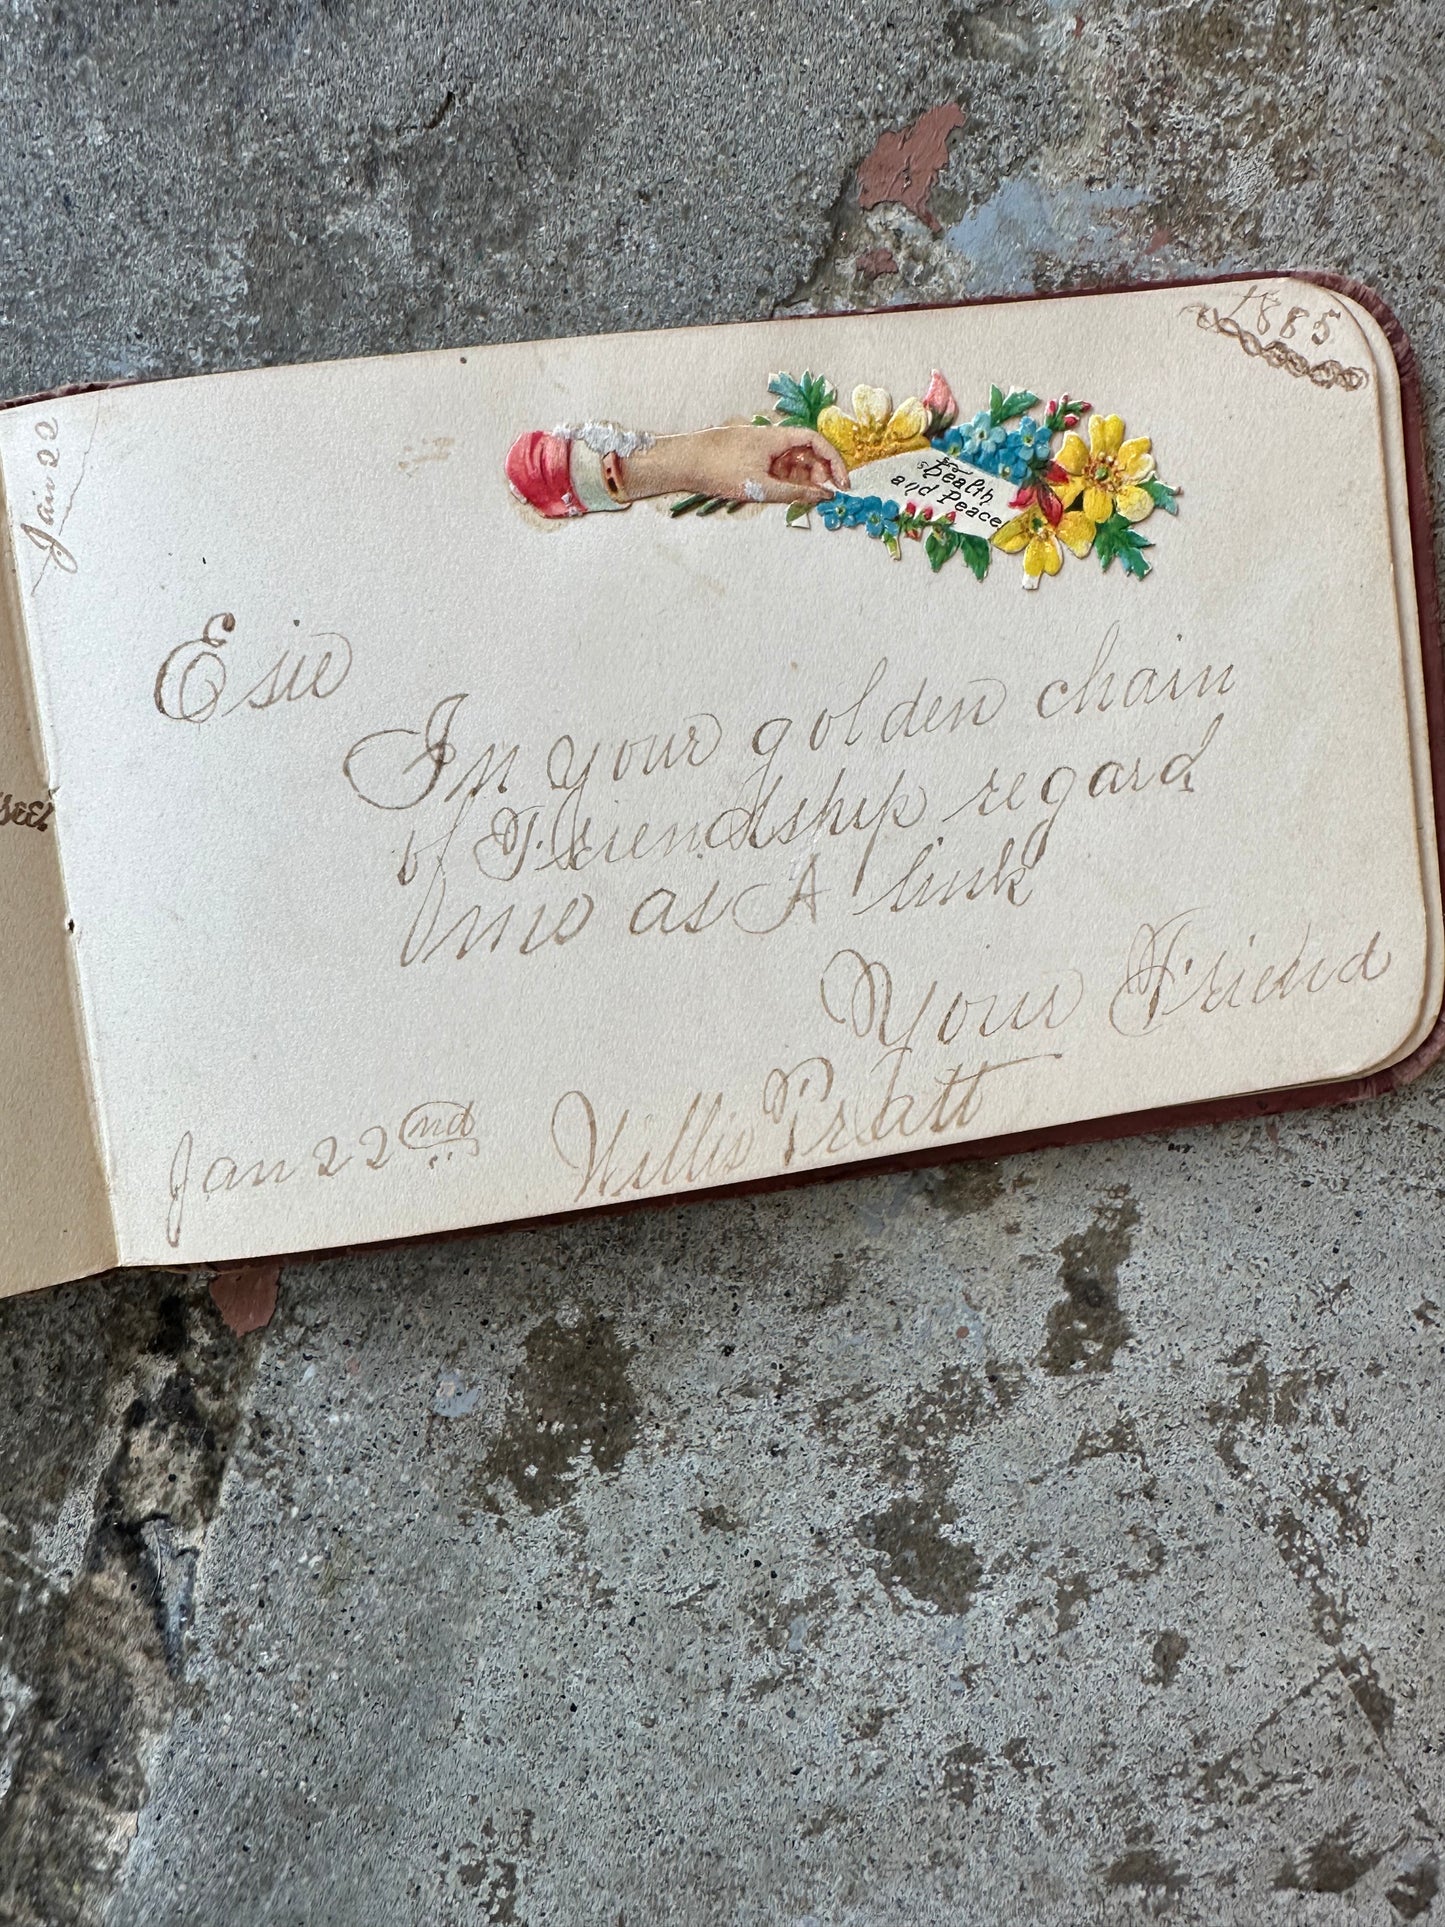 1885
Jan 22
Health
and Peace
Esie
In your golden chain
of Friendship regard
me as A link
Your Friend
Willis Pratt
Jan 22nd